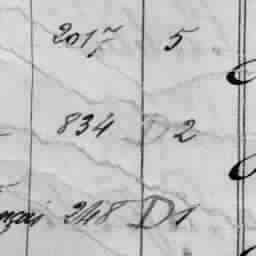 2017 5
834 D 2
248 D 1